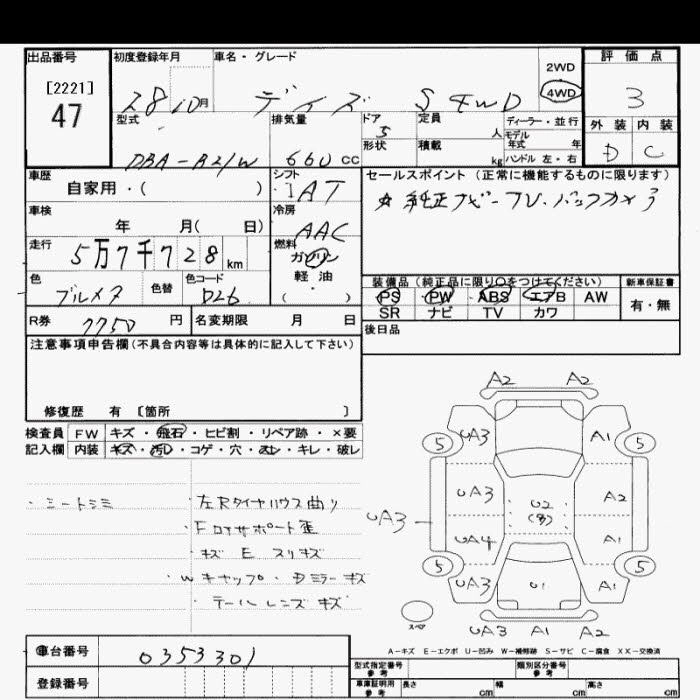 出品番号 初度登録年月 車名・グレード 2WD 評価点
[2221] 47 28 10月 デイズ S 4WD 4WD 3
型式 排気量 ドア 定員 ディーラー・並行 外装 内装
5 人 モデル年式 年
DBA-B21W 660 CC 形状 積載 kg ハンドル 左・右 D C
車歴 シフト セールスポイント(正常に機能するものに限ります)
自家用・( ) AT ☆ 純正ナビ-TV・バックカメラ
車検 冷房
年 月( 日) AAC
走行 燃料
5万7千728km ガソリン
色 色替 色コード 軽油 装備品(純正品に限り○をつけてください) 新車保証書
ブルメタ B26 ( ) PS PW ABS エアB AW 有・無
SR ナビ TV カワ
R券 7750 円 名変期限 月 日 後日品
注意事項申告欄(不具合内容等は具体的に記入して下さい)
修復歴 有 [箇所 ]
検査員 FW キズ・飛石・ヒビ割・リペア跡・×要
記入欄 内装 キズ・汚れ・コゲ・穴・スレ・キレ・破レ
・シートシミ
左Rタイヤハウス曲り
・Fロアサポート歪
・キズ E スリキズ
・Wキャップ・Dミラーキズ
・テールレンズキズ
A2 A2
5 UA3 A1 5
UA3 U2 A2
(多)
UA3
UA4 A1
5 UA3 U1 A1 5
スペア UA3 A1 A2
A-キズ E-エクボ U-凹み W-補修跡 S-サビ C-腐食 XX-交換済
車台番号 0353301
型式指定番号 参考 類別区分番号 参考
登録番号 車庫証明用 参考 長さ cm 幅 cm 高さ cm